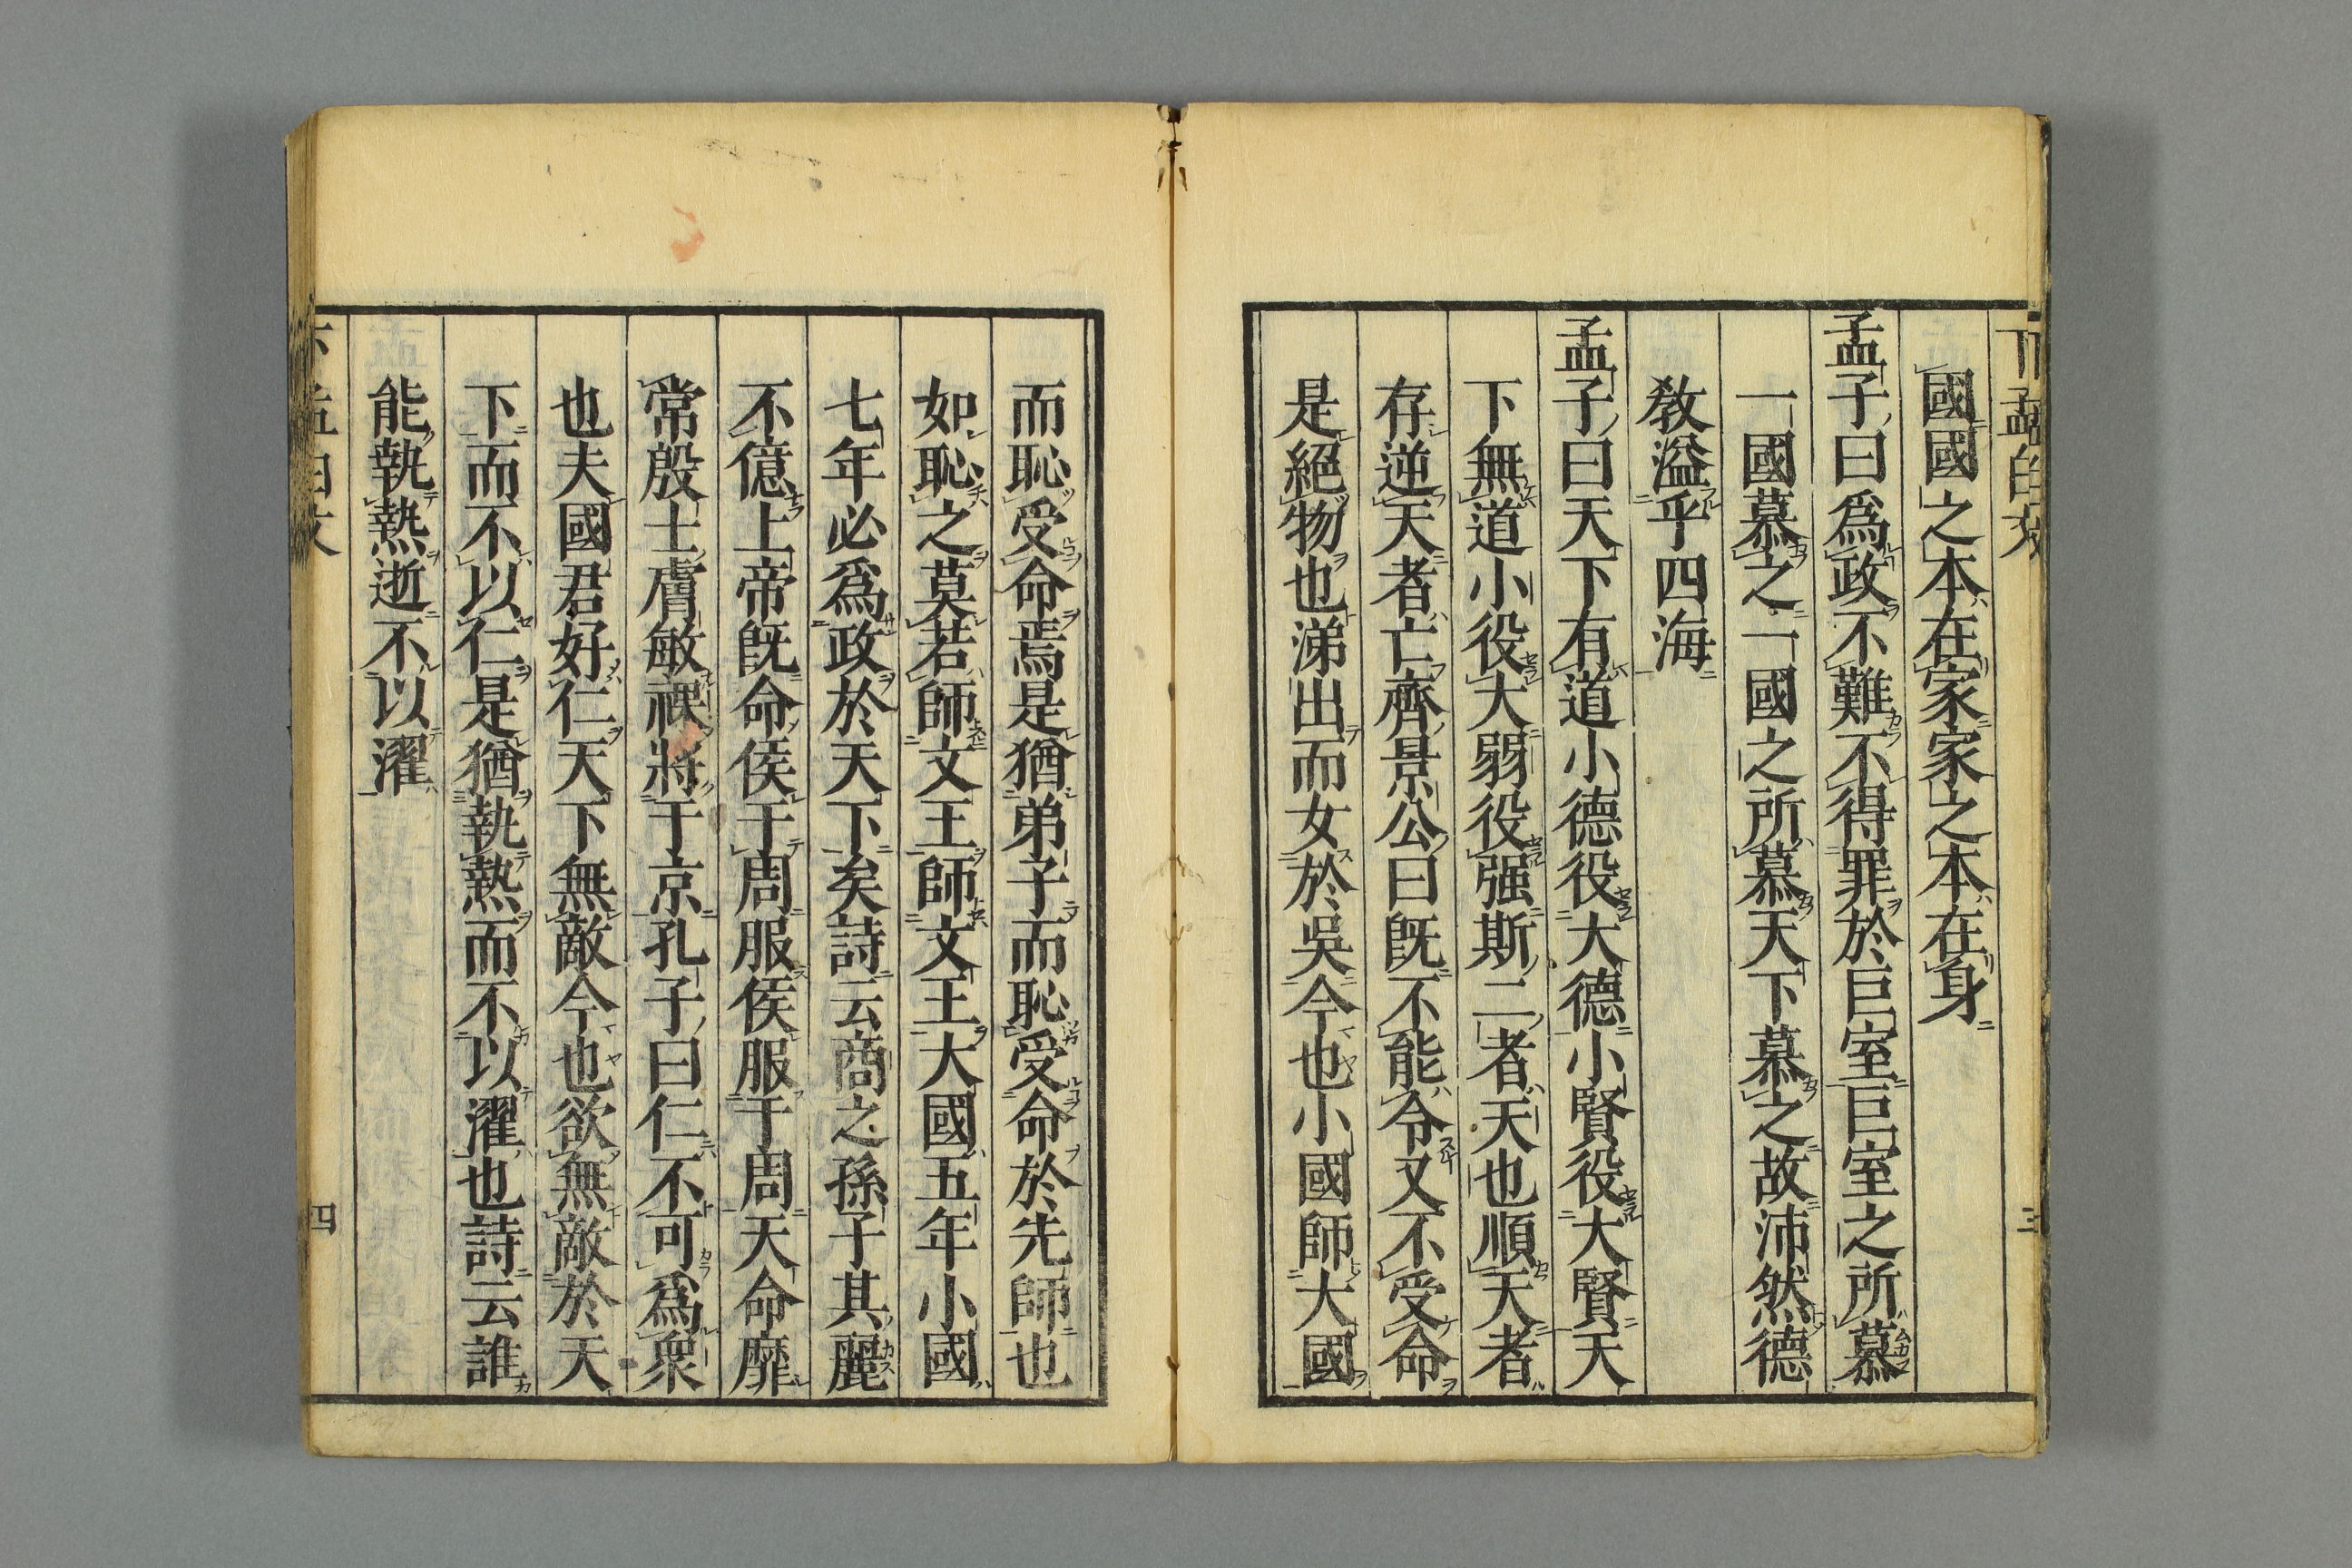 國國之本在家家之本在身
孟子曰爲政不難不得罪於巨室巨室之所慕
一國慕之一國之所慕天下慕之故沛然德
敎溢乎四海
孟子曰天下有道小德役大德小賢役大賢天
下無道小役大弱役强斯二者天也順天者
存逆天者亡齊景公曰既不能令又不受命
是絕物也涕出而女於吳今也小國師大國
三
而恥受命焉是猶弟子而恥受命於先師也
如恥之莫若師文王師文王大國五年小國
七年必爲政於天下矣詩云商之孫子其麗
不億上帝既命侯于周服侯服于周天命靡
常殷士膚敏祼將于京孔子曰仁不可爲衆
也夫國君好仁天下無敵今也欲無敵於天
下而不以仁是猶執熱而不以濯也詩云誰
能執熱逝不以濯
四